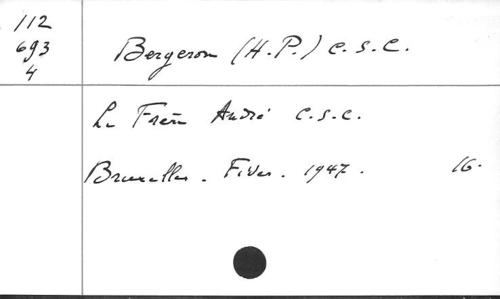 112
693
4
Bergeron (H.P.) C.S.C.
Le Frère André C.S.C.
Bruxelles. Fides. 1947. 16.